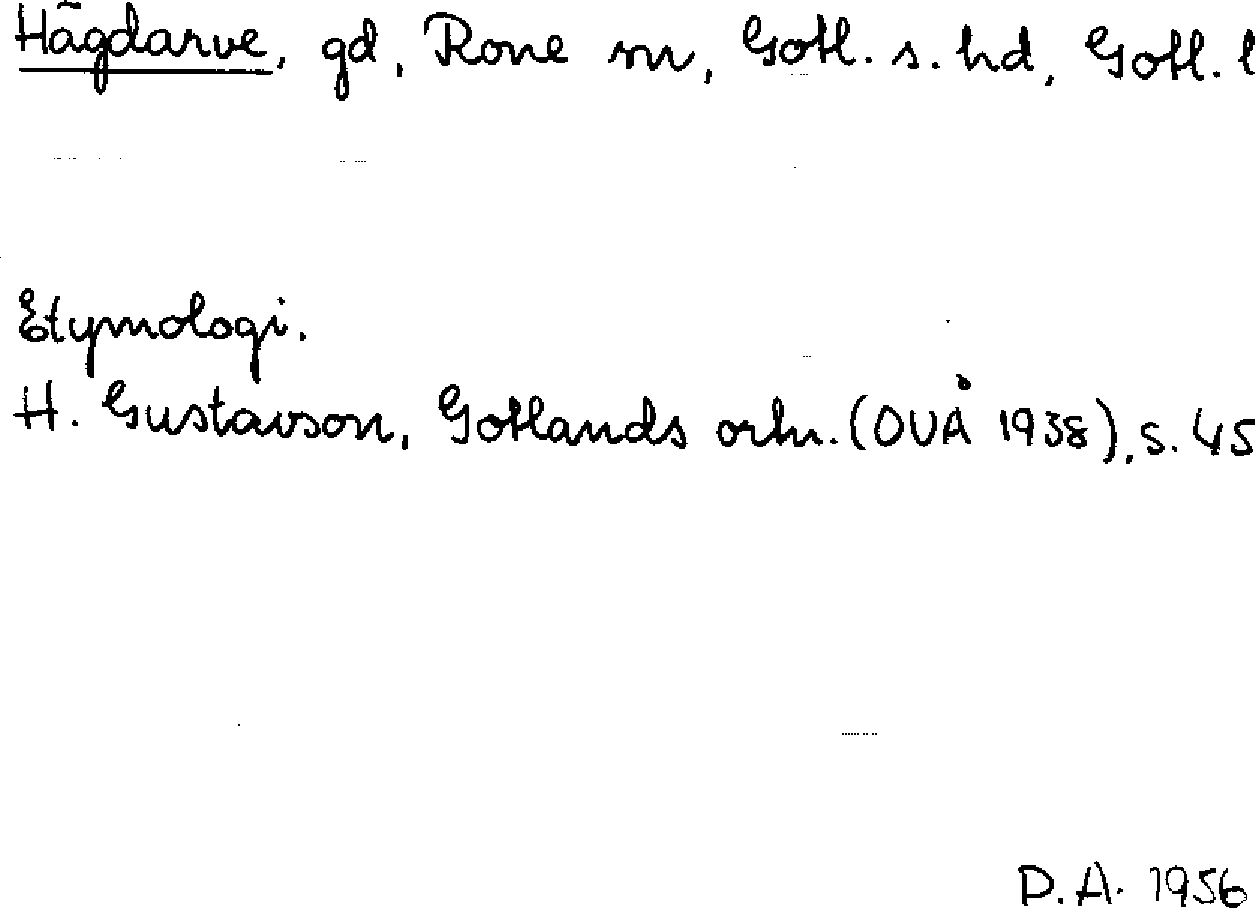 Hägdarve, gd, Rone sn, Gotl. s. hd, Gotl. l
Etymologi.
H. Gustavson, Gotlands ortn. (OUÅ 1938), s. 45
D.A. 1956